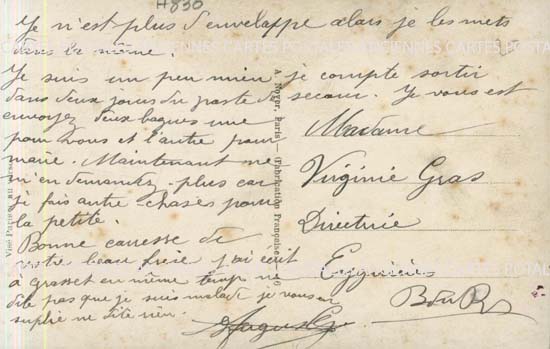 H830
Je n'est plus d'envelappe alors je les mets
dans la même.
Je suis un peu mieu je compte sortir
dans deux jours du poste de secour. Je vous est
envoyez deux bagues une
pour vous et l'autre pour
marie. Maintenant ne
m'en demandez plus car
je fais autre chases pour
la petite.
Bonne carresse de
votre beau frere j'ai ecrit
à grasset en même temp ne
dite pas que je suis malade je vous en
suplie ne dite rien.
Madame
Virginie Gras
Directrice
Eyguières
B du R
A. Noyer, Paris — (Fabrication Française)
Visé Paris
ANCIENNES CARTES POSTALES